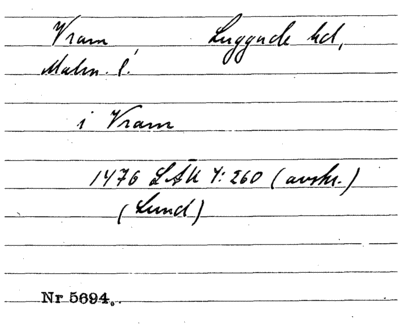 Vram Luggude hd,
Malm. l.
i Vram
1476 LÄU 4: 260 (avskr.)
(Lund)
Nr 5694.